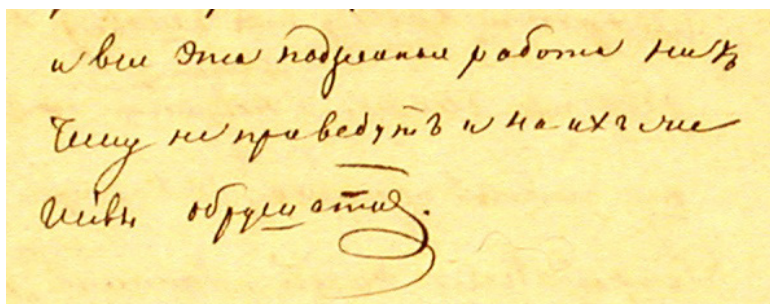 и вся эта подземная работа ни къ
чему не приведутъ и на ихъ же
обрушатся.